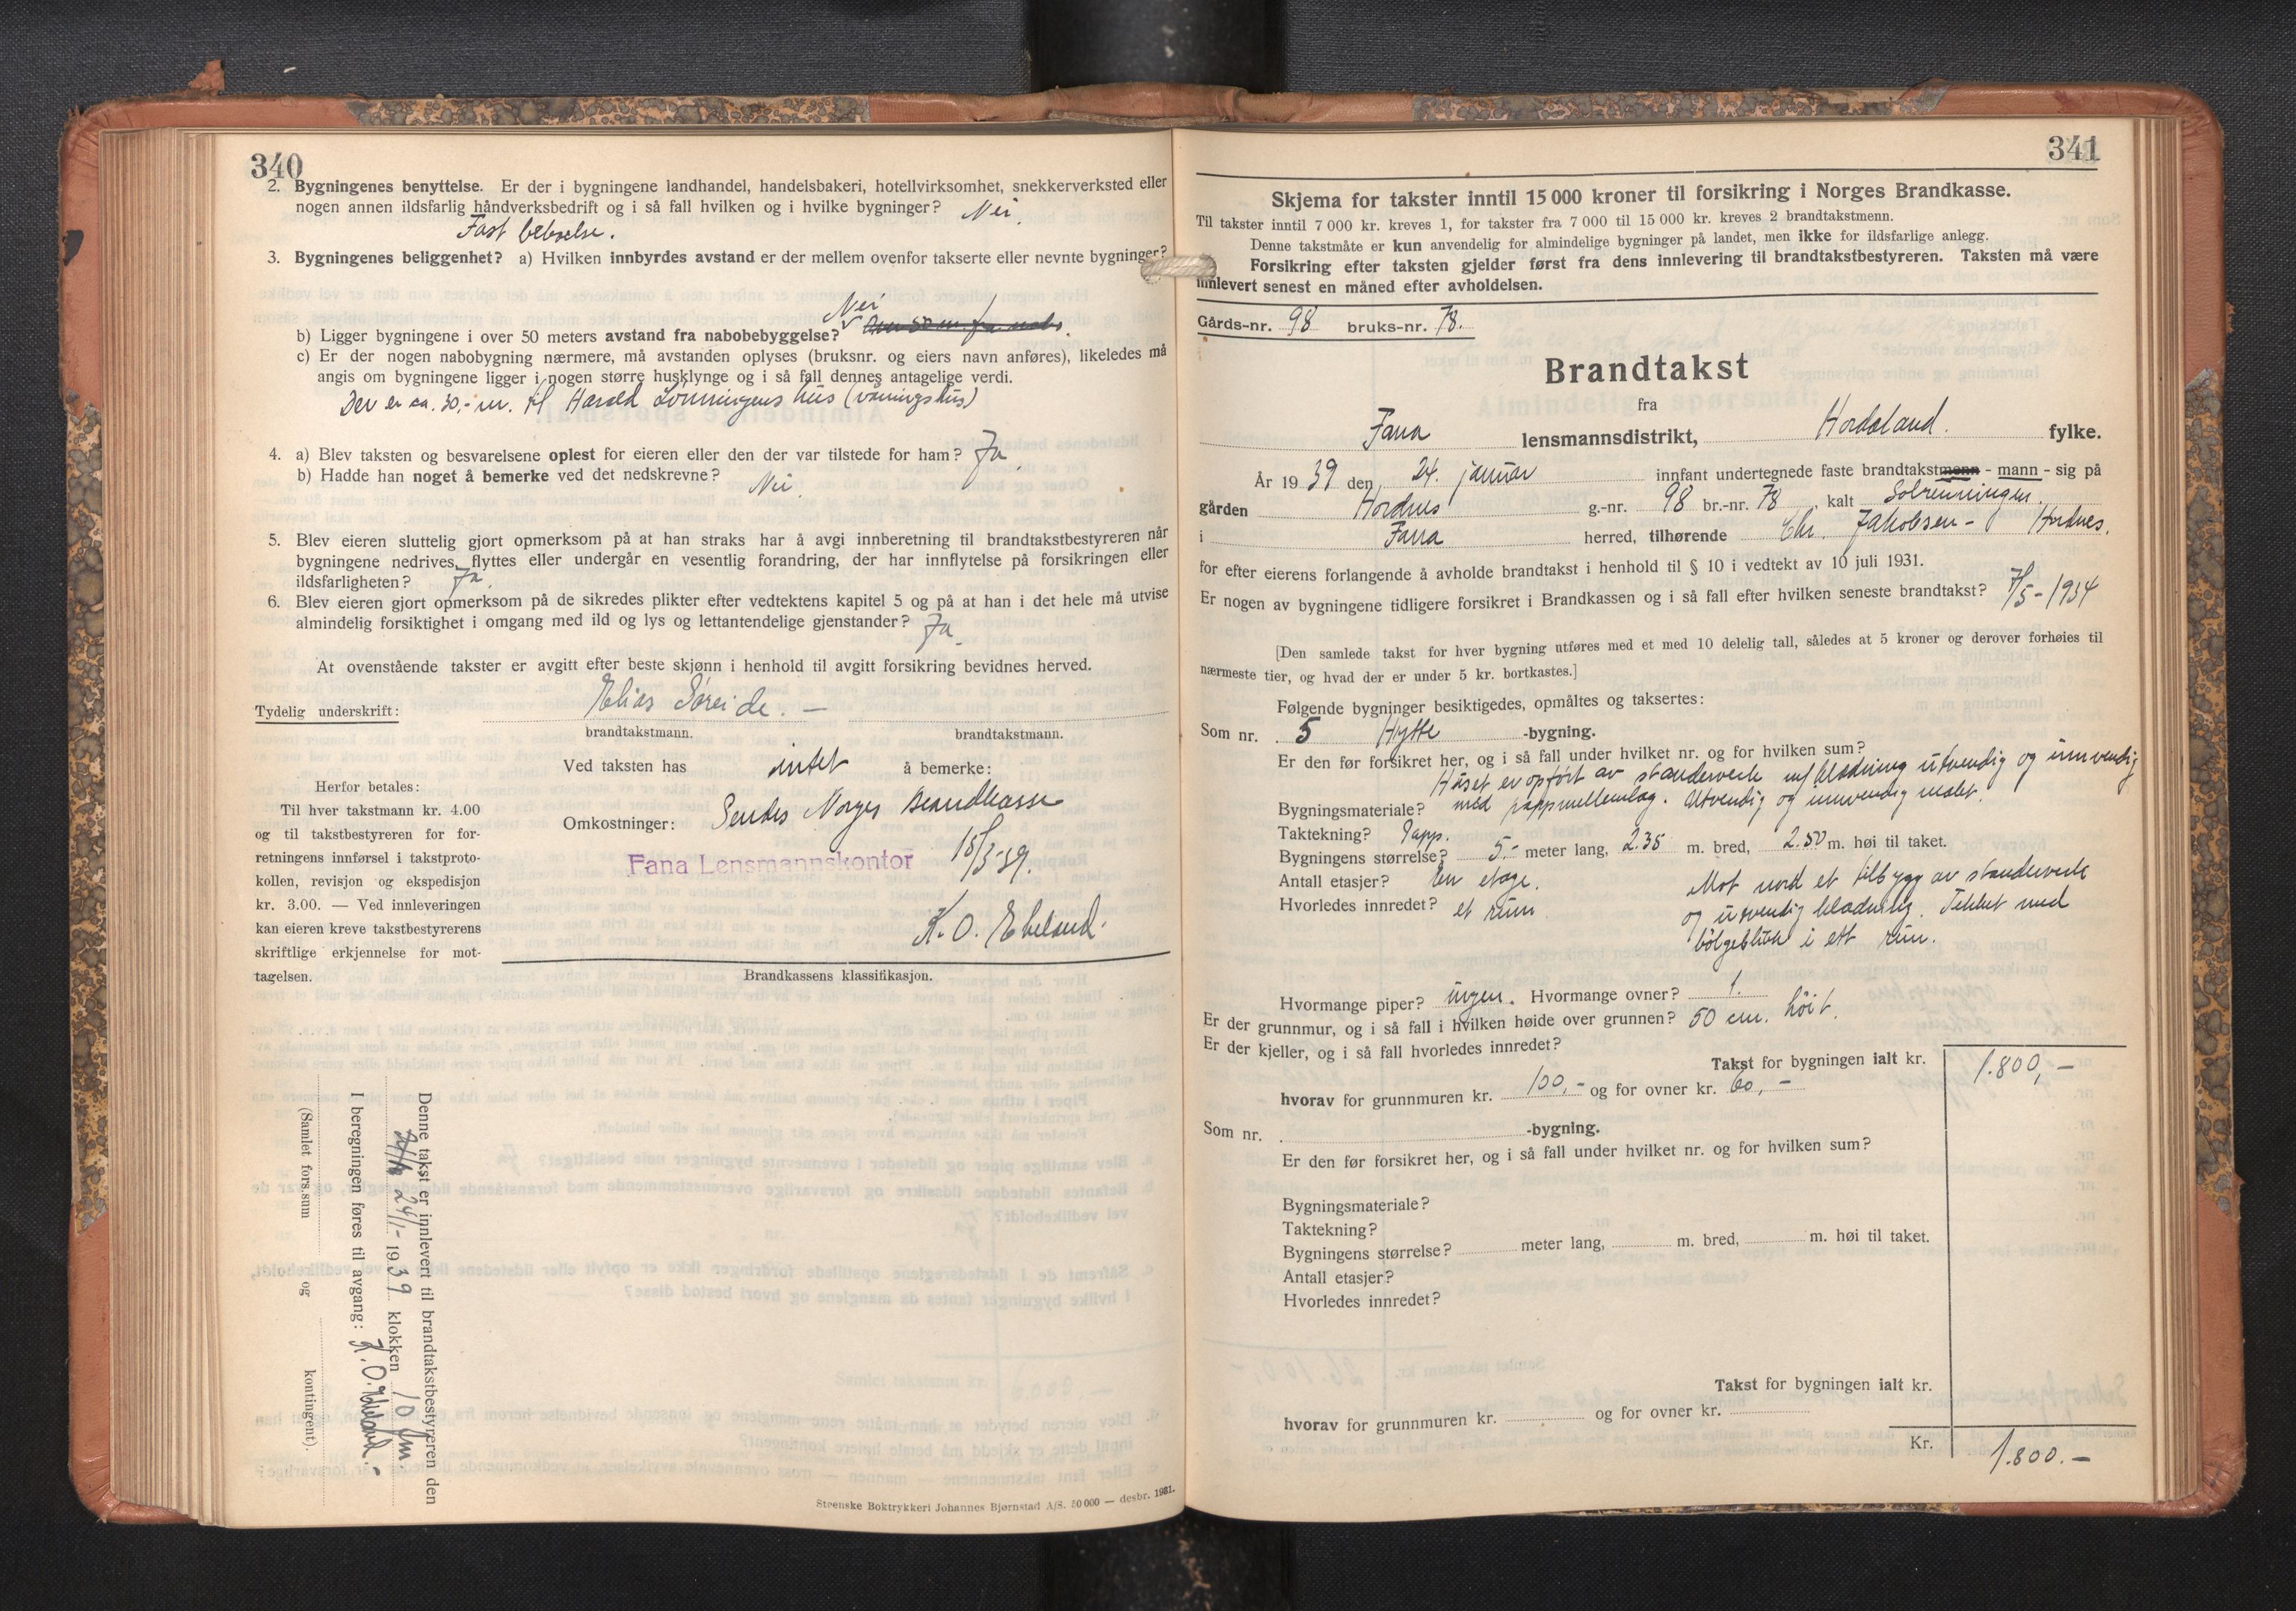 340
2. Bygningenes benyttelse. Er der i bygningene landhandel, handelsbakeri, hotellvirksomhet, snekkerverksted eller
nogen annen ildsfarlig håndverksbedrift og i så fall hvilken og i hvilke bygninger? Nei.
Fast beboelse.
3. Bygningenes beliggenhet? a) Hvilken innbyrdes avstand er der mellem ovenfor takserte eller nevnte bygninger?
Nei
b) Ligger bygningene i over 50 meters avstand fra nabobebyggelse?
c) Er der nogen nabobygning nærmere, må avstanden oplyses (bruksnr. og eiers navn anføres), likeledes må
angis om bygningene ligger i nogen større husklynge og i så fall dennes antagelige verdi.
Der er ca. 30,- m. til Harald Lönningens hus (våningshus)
4. a) Blev taksten og besvarelsene oplest for eieren eller den der var tilstede for ham? Ja
b) Hadde han noget å bemerke ved det nedskrevne? Nei.
5. Blev eieren sluttelig gjort opmerksom på at han straks har å avgi innberetning til brandtakstbestyreren når
bygningene nedrives, flyttes eller undergår en vesentlig forandring, der har innflytelse på forsikringen eller
ildsfarligheten? Ja.
6. Blev eieren gjort opmerksom på de sikredes plikter efter vedtektens kapitel 5 og på at han i det hele må utvise
almindelig forsiktighet i omgang med ild og lys og lettantendelige gjenstander? Ja.
At ovenstående takster er avgitt efter beste skjønn i henhold til avgitt forsikring bevidnes herved.
Tydelig underskrift: Elias Söreide. —
brandtakstmann. brandtakstmann.
Ved taksten has intet å bemerke:
Omkostninger: Sendes Norges Brandkasse
Fana Lensmannskontor 15/3-39.
K. O.
Brandkassens klassifikasjon.
Herfor betales:
Til hver takstmann kr. 4.00
og til takstbestyreren for for-
retningens innførsel i takstproto-
kollen, revisjon og ekspedisjon
kr. 3.00. — Ved innleveringen
kan eieren kreve takstbestyrerens
skriftlige erkjennelse for mot-
tagelsen.
Denne takst er innlevert til brandtakstbestyreren den
24/1- 1939 klokken 10 fm.
I beregningen føres til avgang: K. O.
(Samlet fors.sum og kontingent).
Steenske Boktrykkeri Johannes Bjørnstad A/S. 50 000 — desbr. 1931.
341
Skjema for takster inntil 15 000 kroner til forsikring i Norges Brandkasse.
Til takster inntil 7 000 kr. kreves 1, for takster fra 7 000 til 15 000 kr. kreves 2 brandtakstmenn.
Denne takstmåte er kun anvendelig for almindelige bygninger på landet, men ikke for ildsfarlige anlegg.
Forsikring efter taksten gjelder først fra dens innlevering til brandtakstbestyreren. Taksten må være
innlevert senest en måned efter avholdelsen.
Gårds-nr. 98 bruks-nr. 78.
Brandtakst
fra
Fana lensmannsdistrikt, Hordaland. fylke.
År 1939 den 24. januar innfant undertegnede faste brandtakstmenn - mann - sig på
gården Hordnes g.-nr. 98 br.-nr. 78, kalt
i Fana herred, tilhørende Chr. Jakobsen - Hordnes.
for efter eierens forlangende å avholde brandtakst i henhold til § 10 i vedtekt av 10 juli 1931.
Er nogen av bygningene tidligere forsikret i Brandkassen og i så fall efter hvilken seneste brandtakst? 7/5-1934
[Den samlede takst for hver bygning utføres med et med 10 delelig tall, således at 5 kroner og derover forhøies til
nærmeste tier, og hvad der er under 5 kr. bortkastes.]
Følgende bygninger besiktigedes, opmåltes og taksertes:
Som nr. 5 Hytte -bygning.
Er den før forsikret her, og i så fall under hvilket nr. og for hvilken sum?
Huset er opfört av standerverk m/ kledning utvendig og innvendig
Bygningsmateriale? med pappmellemlag. Utvendig og innvendig malet.
Taktekning? Papp.
Bygningens størrelse? 5.- meter lang, 2.35 m. bred, 2.50 m. høi til taket.
Antall etasjer? En etage. Mot nord et tilbygg av standerverk
Hvorledes innredet? et rum og utvendig kledning. Tekket med
bölgeblikk i ett rum.
Hvormange piper? ingen. Hvormange ovner? 1.
Er der grunnmur, og i så fall i hvilken høide over grunnen? 50 cm. höit.
Er der kjeller, og i så fall hvorledes innredet?
Takst for bygningen ialt kr. 1.800,-
hvorav for grunnmuren kr. 100,- og for ovner kr. 60,-
Som nr. -bygning.
Er den før forsikret her, og i så fall under hvilket nr. og for hvilken sum?
Bygningsmateriale?
Taktekning?
Bygningens størrelse? meter lang, m. bred, m. høi til taket.
Antall etasjer?
Hvorledes innredet?
Takst for bygningen ialt kr.
hvorav for grunnmuren kr. og for ovner kr.
Kr. 1.800.-